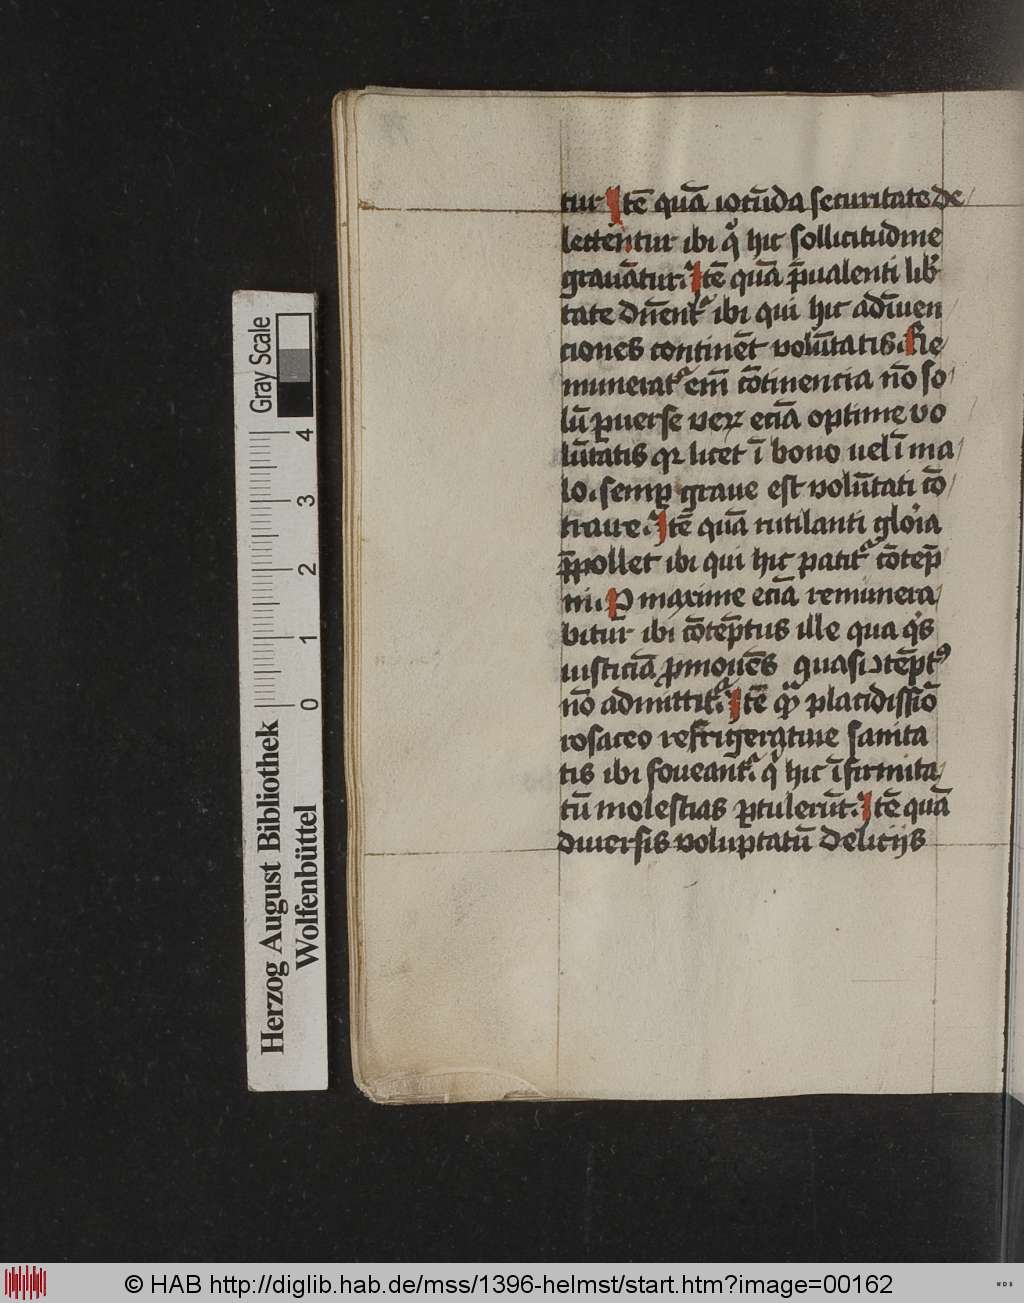 tur Itē quā iocūda securitate de
lectentur ibi q̄ hic sollicitudine
grauātur. Itē quā p̄ualenti lib̾
tate dn̄ent᷑ ibi qui hic adīuen
ciones continēt volūtatis. Re
munerat᷑ em̄ cōtinencia nō so
lū puerse veꝝ eciā optime vo
lūtatis qꝛ licet ī bono uel ī ma
lo. semꝑ graue est volūtati cō
traire. Itē quā rutilanti gl'oia
p̄pollet ibi qui hic patit᷑ cōtep̄
ni. P maxime eciā remunera
bitur ibi cōtēptus ille qua q̾s
iusticiā ꝓmouēs quasi ↄtēptꝰ
nō admittit᷑. Itē qͣ placidissīo
rosaceo refrigeratiue sanita
tis ibi foueant᷑. q̾ hic īfirmita
tū molestias ꝑtulerūt. Itē quā
diuersis voluptatū delicijs
Gray Scale
4
3
2
1
0
Herzog August Bibliothek
Wolfenbüttel
© HAB http://diglib.hab.de/mss/1396-helmst/start.htm?image=00162